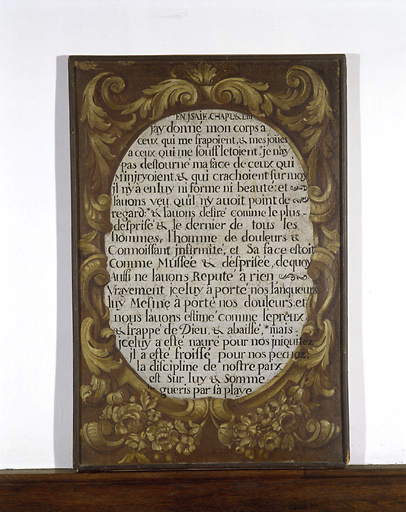 EN JSAIE CHAP L & LIII
Jay donné mon corps a
ceux qui me frapoient, & mes joües
a ceux qui me souffletoient: je n'ay
pas destourné ma face de ceux qui
Minjuryoient, & qui crachoient sur moy
il ny a en luy ni forme ni beauté: et
lauons veu qu'il ny auoit point de
regard: & lauons desiré comme le plus
desprisé & le dernier de tous les
hommes, lhomme de douleurs &
Connoissant jnfirmité, et Sa face estoit
Comme Mussée & desprisée, dequoy
Aussi ne lauons Reputé à rien
Vrayement jceluy à porté nos langueurs
luy Mesme à porté nos douleurs, et
nous lauons estimé comme lepreux
& frappé de Dieu, & abaissé, mais
jceluy a esté nauré pour nos iniquitez
jl a esté froissé pour nos pechez,
la discipline de nostre paix
est Sur luy & Somme
gueris par sa playe